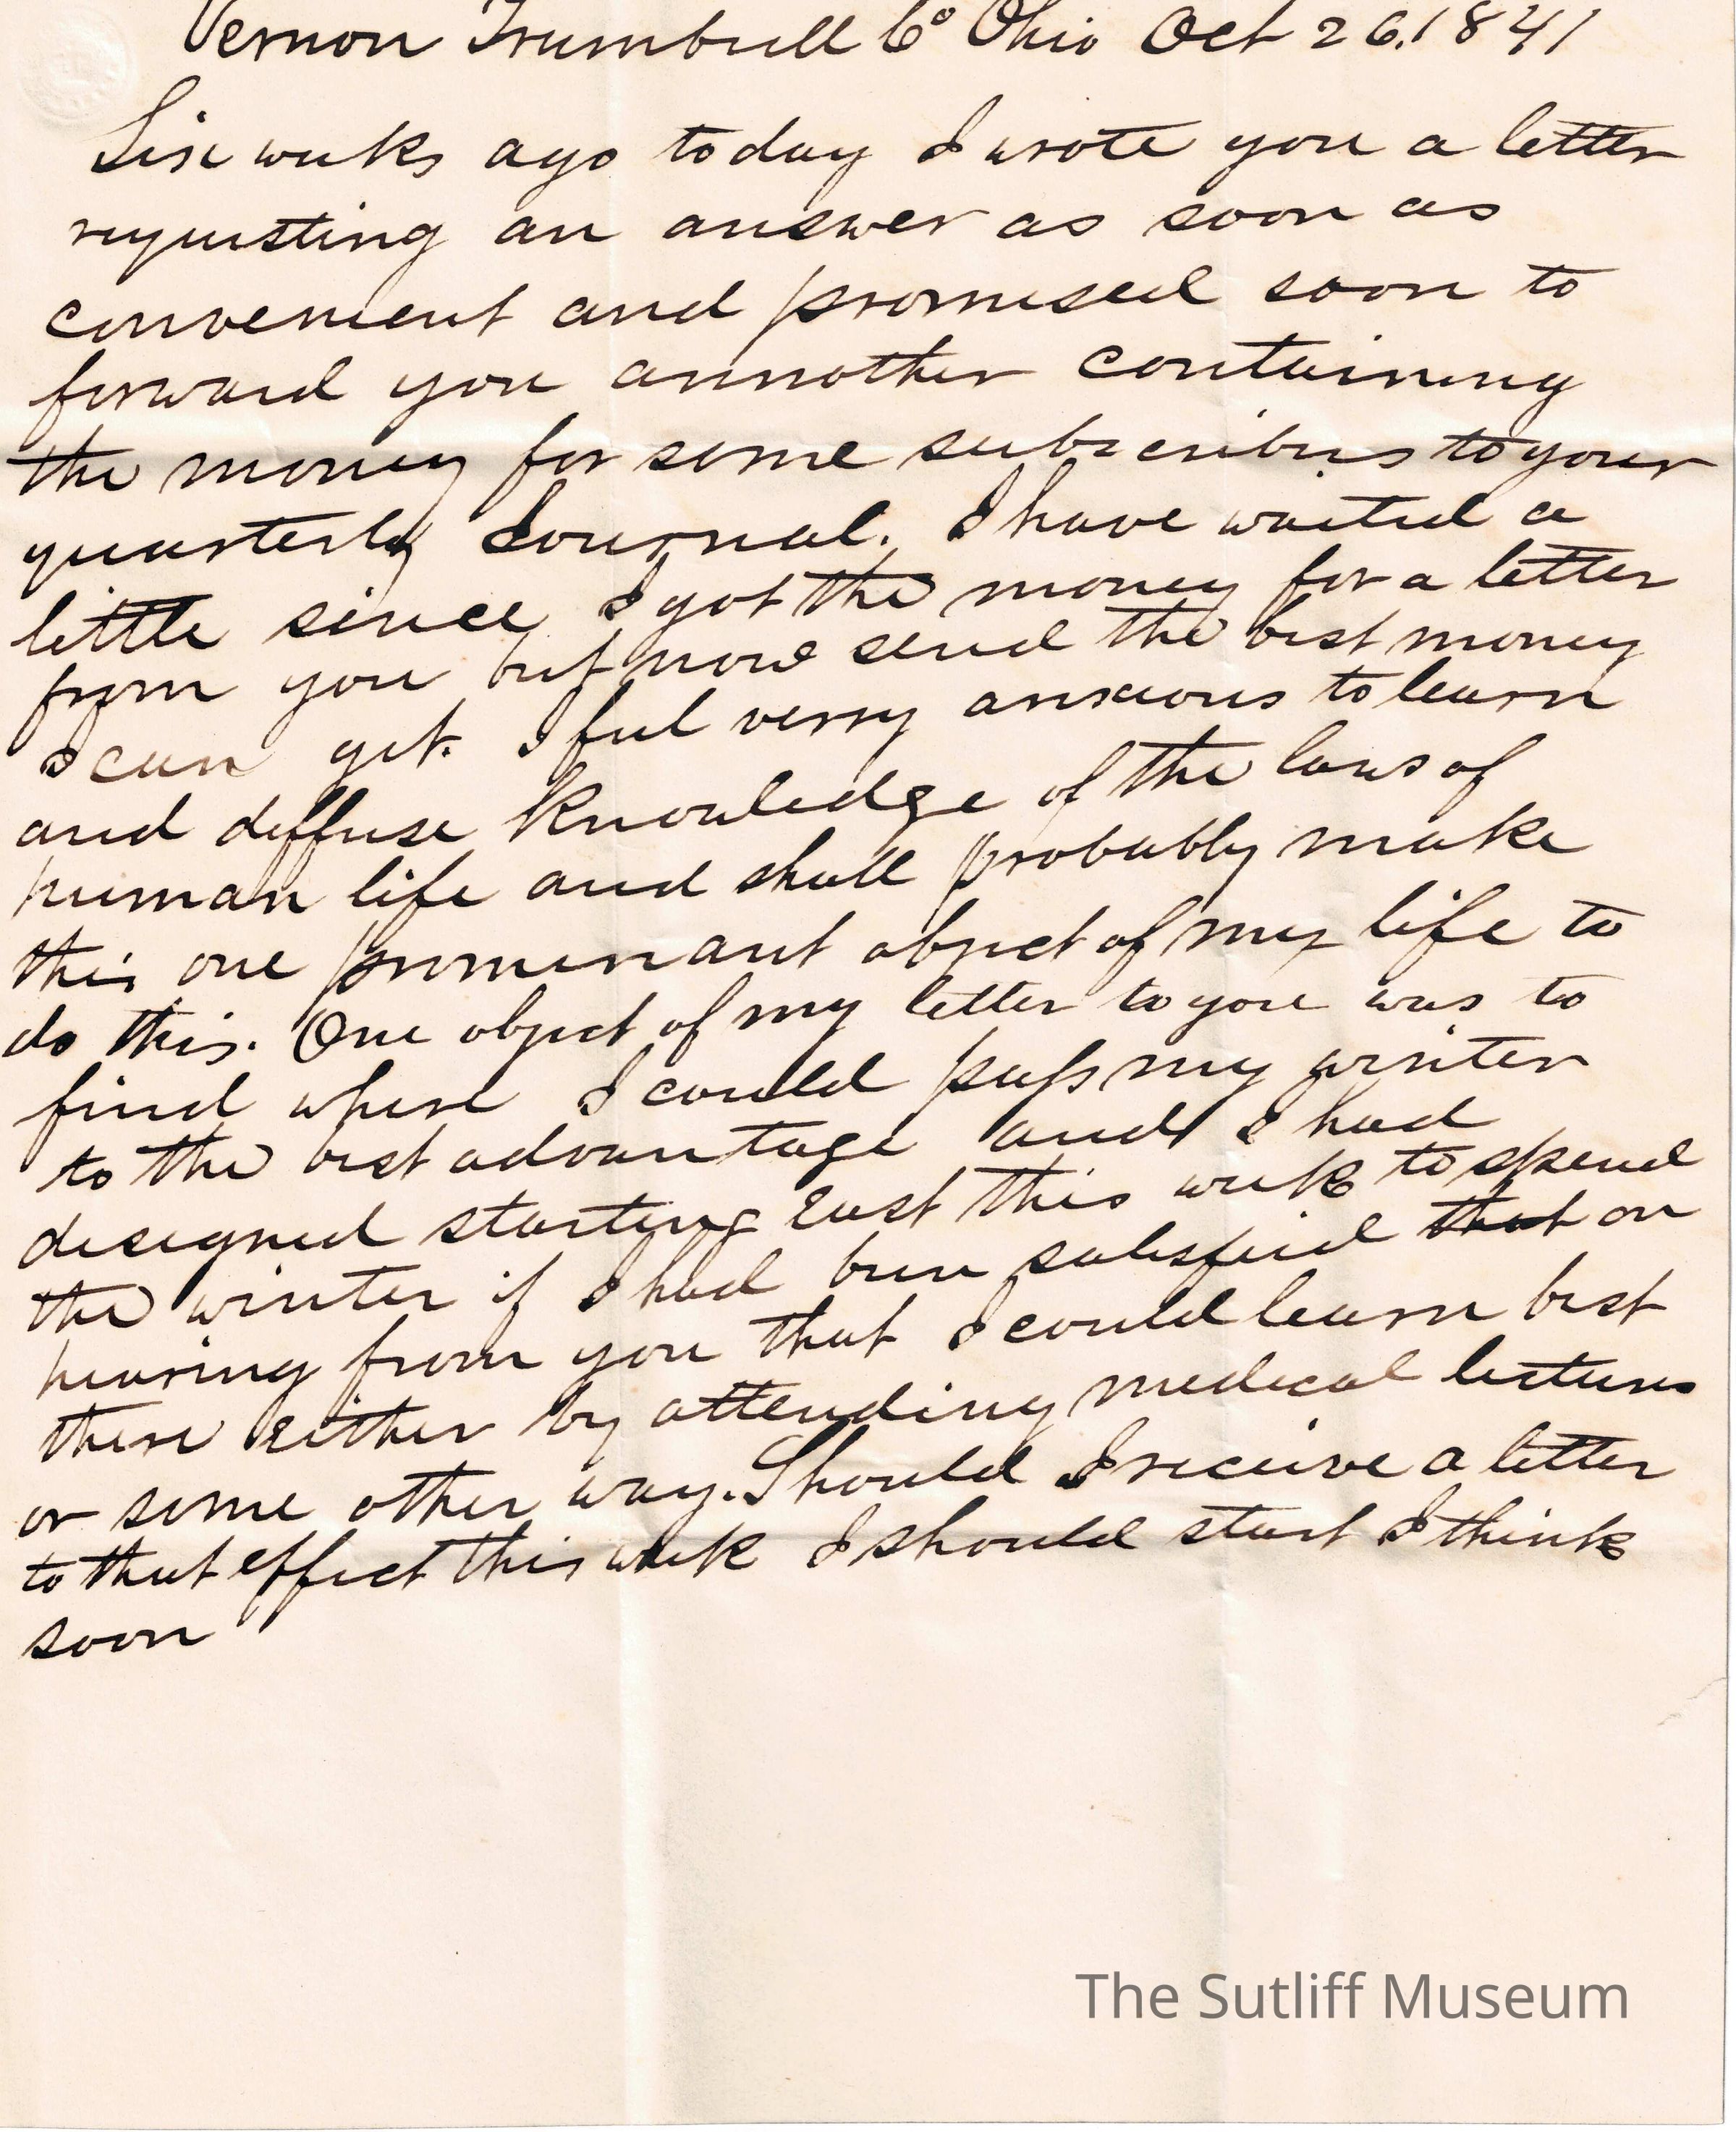 Vernon Trumbull Co Ohio Oct 26, 1841
Six weeks ago today I wrote you a letter
requesting an answer as soon as
convenient and promised soon to
forward you annother containing
the money for some subscribers to your
quarterly Journal. I have waited a
little since I got the money for a letter
from you but now send the best money
I can get. I feel verry anxious to learn
and diffuse knowledge of the laws of
human life and shall probably make
this one prominant object of my life to
do this. One object of my letter to you was to
find where I could pass my winter
to the best advantage and I had
designed starting East this week to spend
the winter if I had been satisfied that on
hearing from you that I could learn best
there either by attending medical lectures
or some other way. Should I receive a letter
to that effect this week I should start I think
soon
The Sutliff Museum